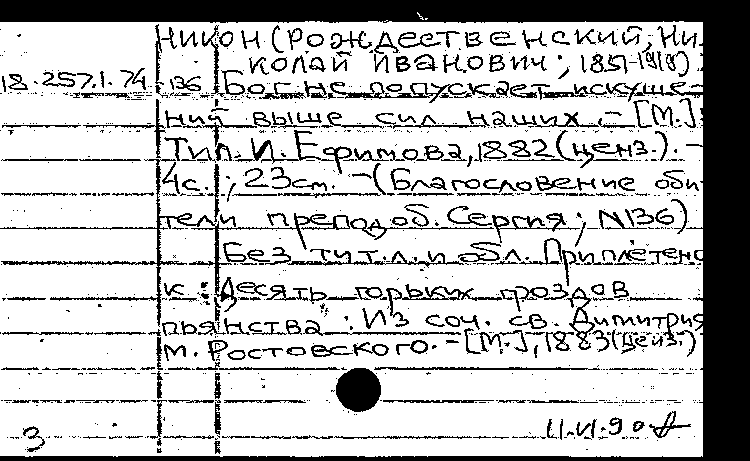 Никон (Рождественский, Ни-
колай Иванович; 1851-1919)
18.257.1.74 :136 Бог не попускает искуше-
ний выше сил наших. - [М.]:
Тип. И. Ефимова, 1882 (ценз.). -
4с.; 23см. - (Благословение оби-
тели преподоб. Сергия; N136)
Без тит.л. и обл. Приплетено
к: Десять горьких гроздов
пьянства: Из соч. св. Димитрия
м. Ростовского. - [М.], 1883 (ценз.)
3 11.VI.90